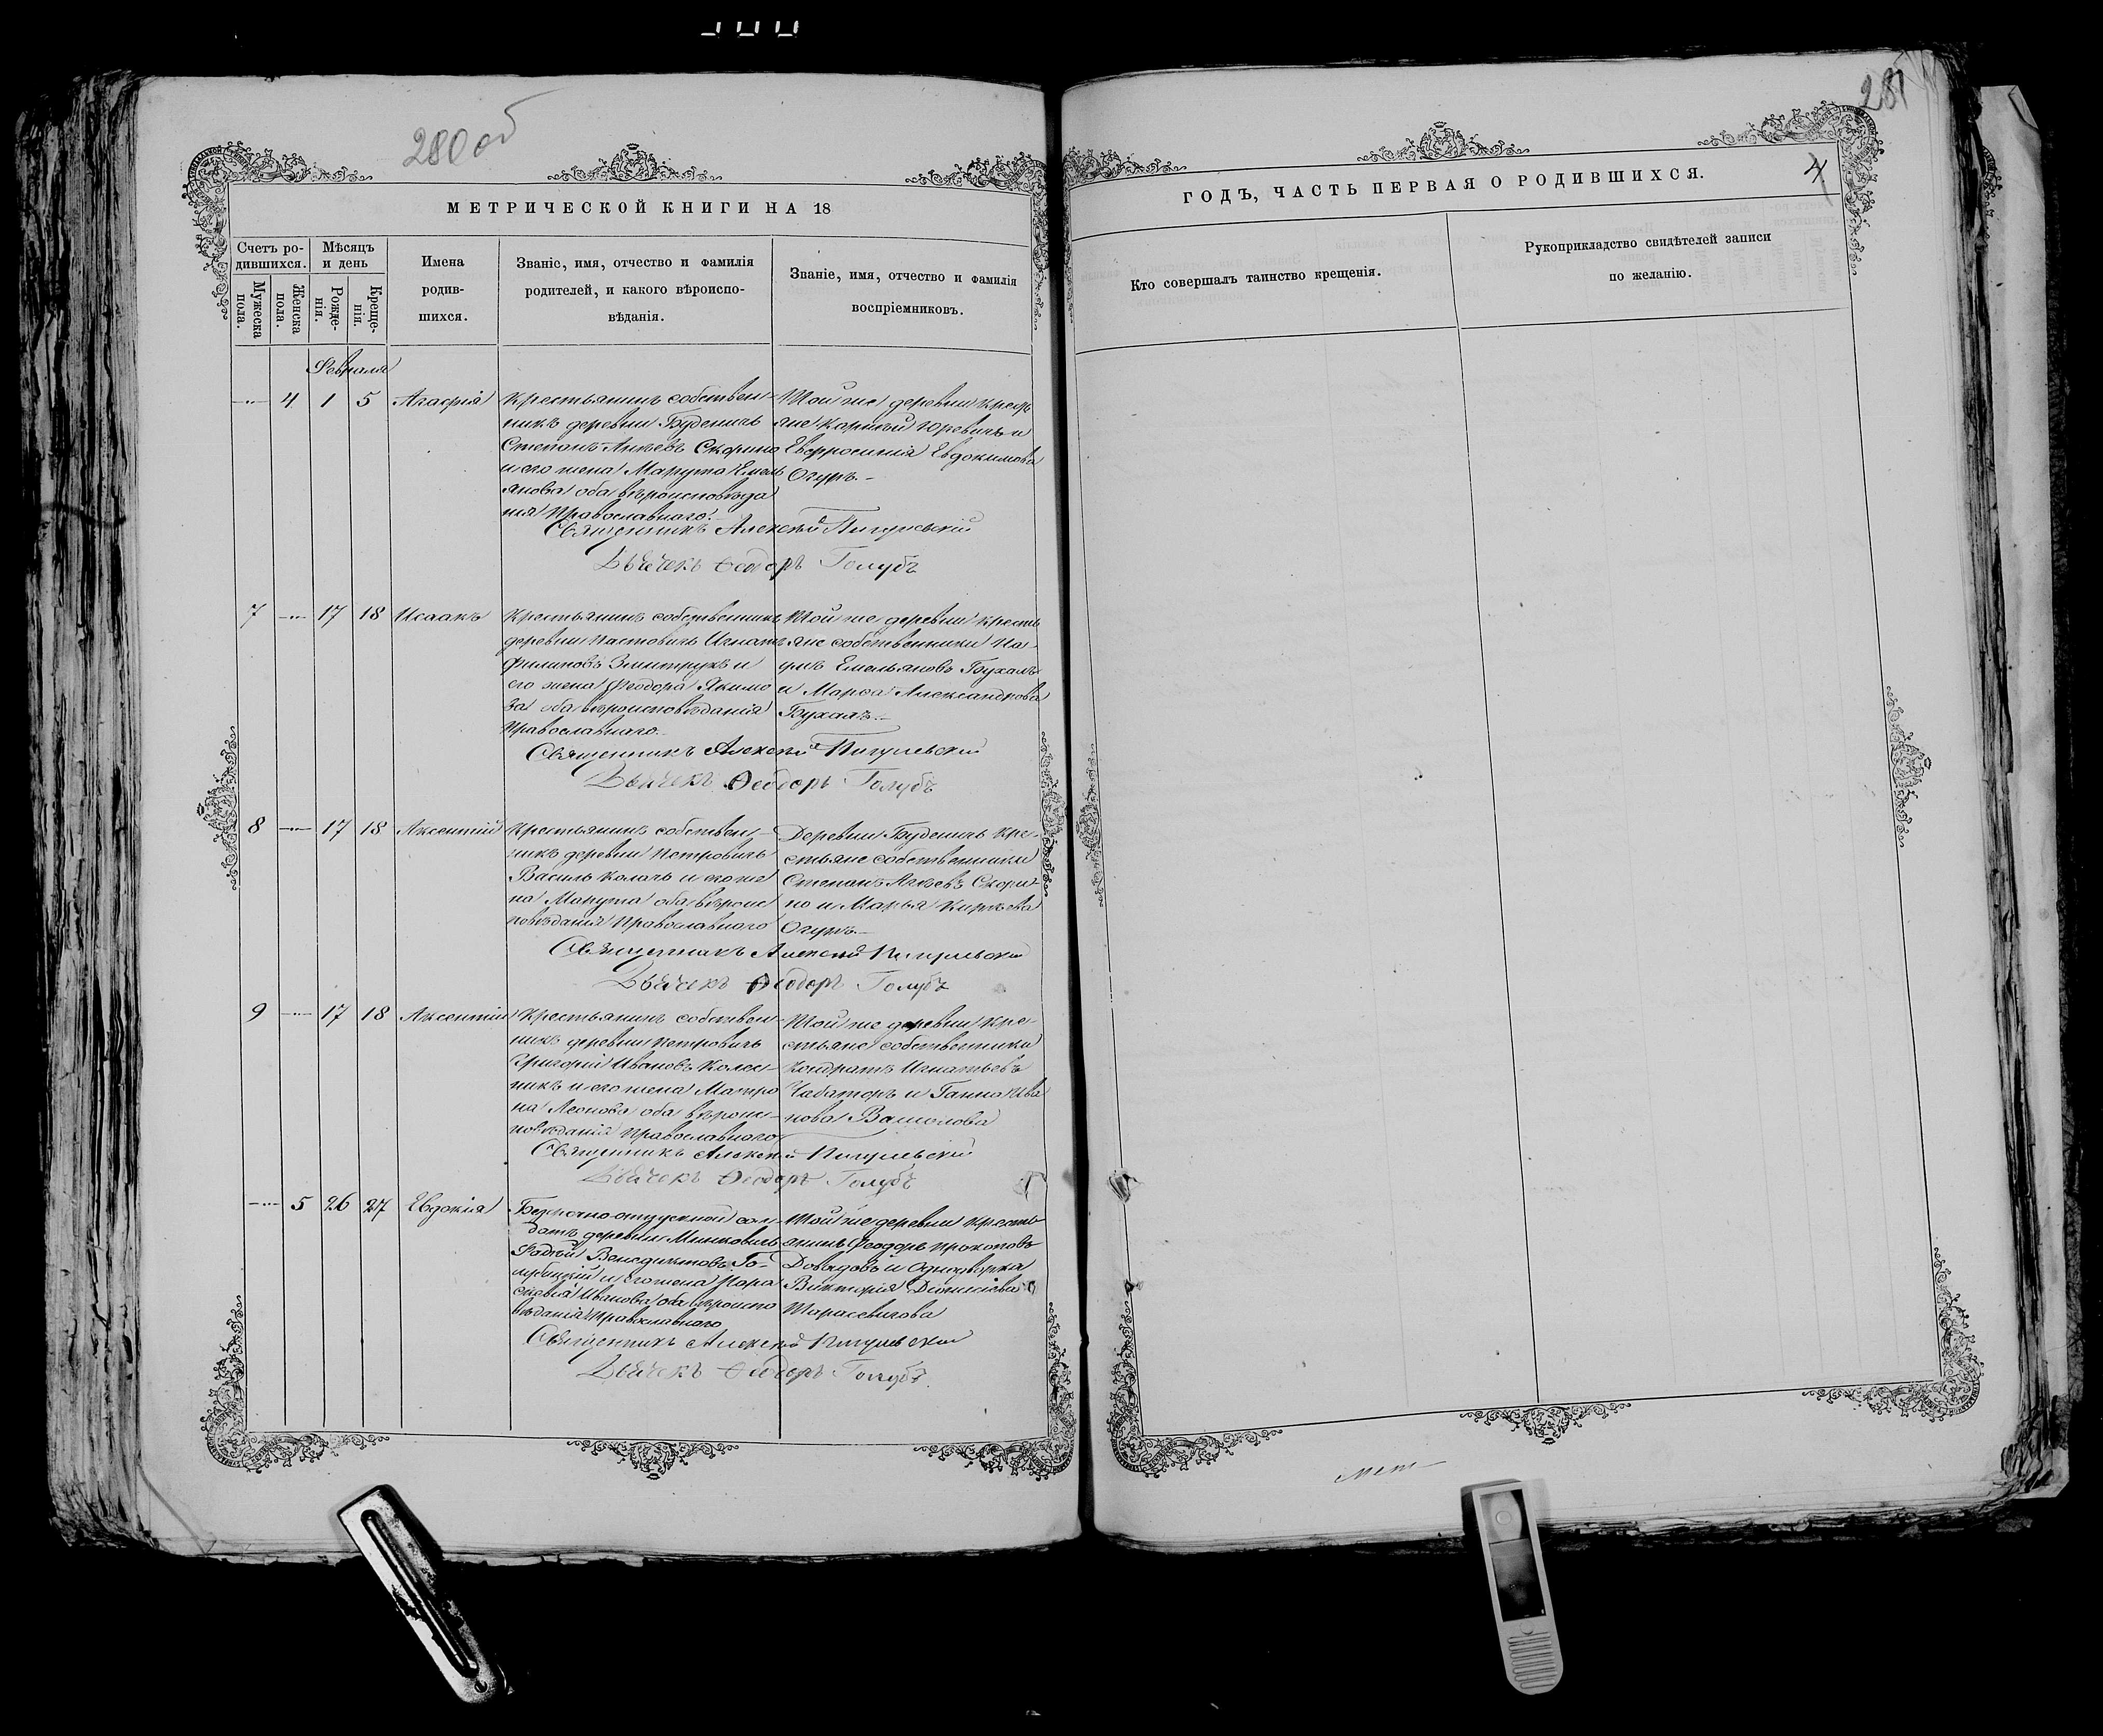 280 об
281
4
МЕТРИЧЕСКОЙ КНИГИ НА 18
ГОДЪ, ЧАСТЬ ПЕРВАЯ О РОДИВШИХСЯ.
Счетъ ро-
дившихся.
Мѣсяцъ
и день
Мужеска
пола.
Женска
пола.
Рожде-
нія.
Креще-
нія.
Имена
родив-
шихся.
Званіе, имя, отчество и фамилія
родителей, и какого вѣроиспо-
вѣданія.
Званіе, имя, отчество и фамилія
воспріемниковъ.
Кто совершалъ таинство крещенія.
Рукоприкладство свидѣтелей записи
по желанію.
Февраля
4 1 5 Агафія
Крестьянинъ собствен-
никъ деревни Буденичь
Степанъ Скорино
и его жена Марута Емель
янова оба вѣроисповѣда
нія Православнаго.
Той же деревни кресть
яне Юревичь и
Евфросинія Евдокимова
Огурь.
Священникъ Алексѣй Пигулевскій
Дьячекъ Ѳеодоръ Голубъ
7 17 18 Исаакъ
Крестьянинъ собственникъ
деревни Пастовичь Игнатъ
Филиповъ Змитрукъ и
его жена Феодора Якимо
ва оба вѣроисповѣданія
Православнаго.
Той же деревни кресть
яне собственники На-
умъ Емельяновъ Бухалъ
и Марѳа Александрова
Бухалъ.
Священникъ Алексѣй Пигулевскій
Дьячекъ Ѳеодоръ Голубъ
8 17 18 Аксентій
Крестьянинъ собствен-
никъ деревни Петровичь
Василь Колачъ и его же
на Марута оба вѣроис
повѣданія Православнаго
Деревни Буденичь кре-
стьяне собственники
Степанъ Скори-
но и Марья Кирѣева
Огурь.
Священникъ Алексѣй Пигулевскій
Дьячекъ Ѳеодоръ Голубъ
9 17 18 Аксентій
Крестьянинъ собствен-
никъ деревни Петровичь
Григорій Ивановъ Колес-
никъ и его жена Матро
на Леонова оба вѣроис-
повѣданія Православнаго
Той же деревни кре-
стьяне собственники
Кондратъ Игнатьевъ
Чабаторъ и Ганна Ива
нова
Священникъ Алексѣй Пигулевскій
Дьячекъ Ѳеодоръ Голубъ
5 26 27 Евдокія
Безсрочно-отпускной сол-
датъ деревни Минковичь
Фадѣй Венедиктовъ Го-
лубицкій и его жена Пара
скевія Иванова оба вѣроиспо
вѣданія Православнаго
Той же деревни кресть-
янинъ Феодоръ Прокоповъ
Довыдовъ и Однодворка
Викторія
Тарасевичова
Священникъ Алексѣй Пигулевскій
Дьячекъ Ѳеодоръ Голубъ